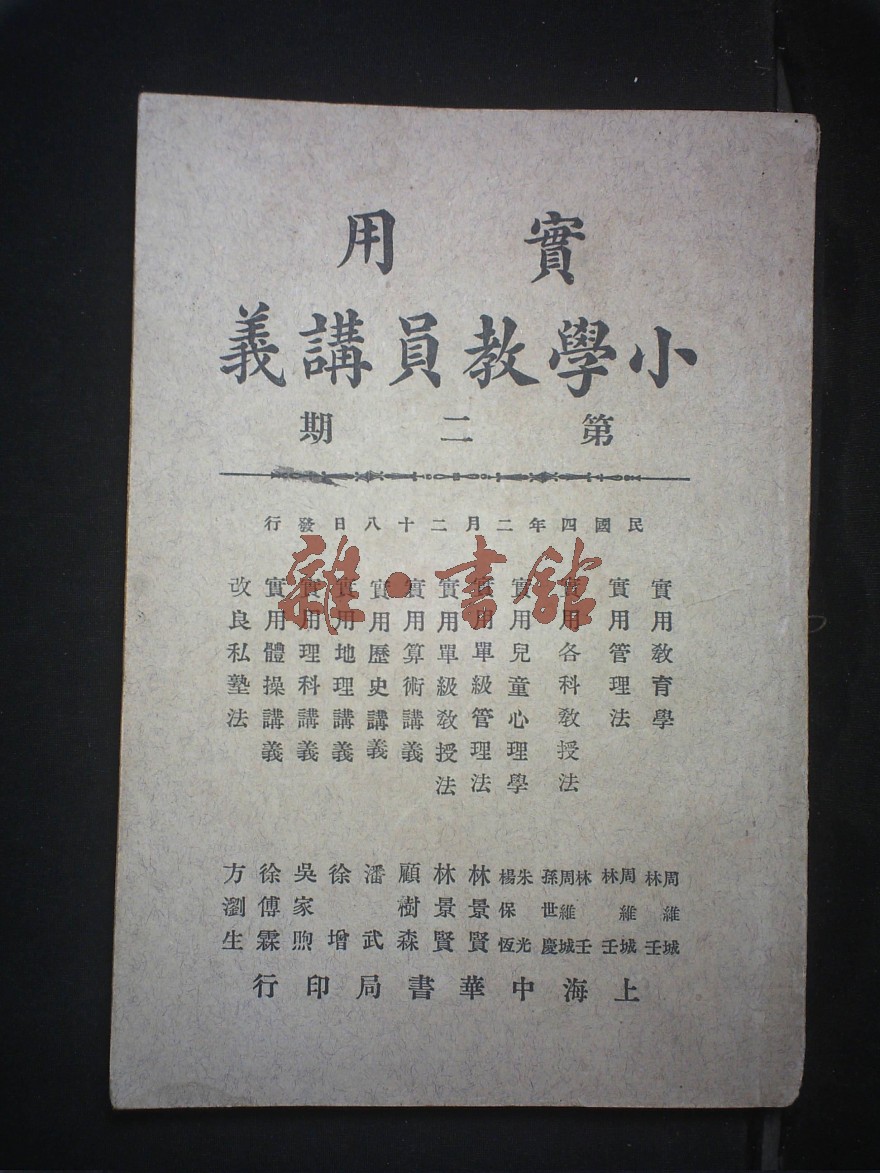 實用
小學教員講義
第二期
民國四年二月二十八日發行
實用教育學
實用管理法
實用各科教授法
實用兒童心理學
實用單級管理法
實用單級教授法
實用算術講義
實用歷史講義
實用地理講義
實用理科講義
實用體操講義
改良私塾法
周維城
林壬
周維城
林壬
林壬
周維城
孫世慶
朱光
楊保恆
林景賢
林景賢
顧樹森
潘武
徐增
吳家煦
徐傅霖
方瀏生
上海中華書局印行
雜·書館